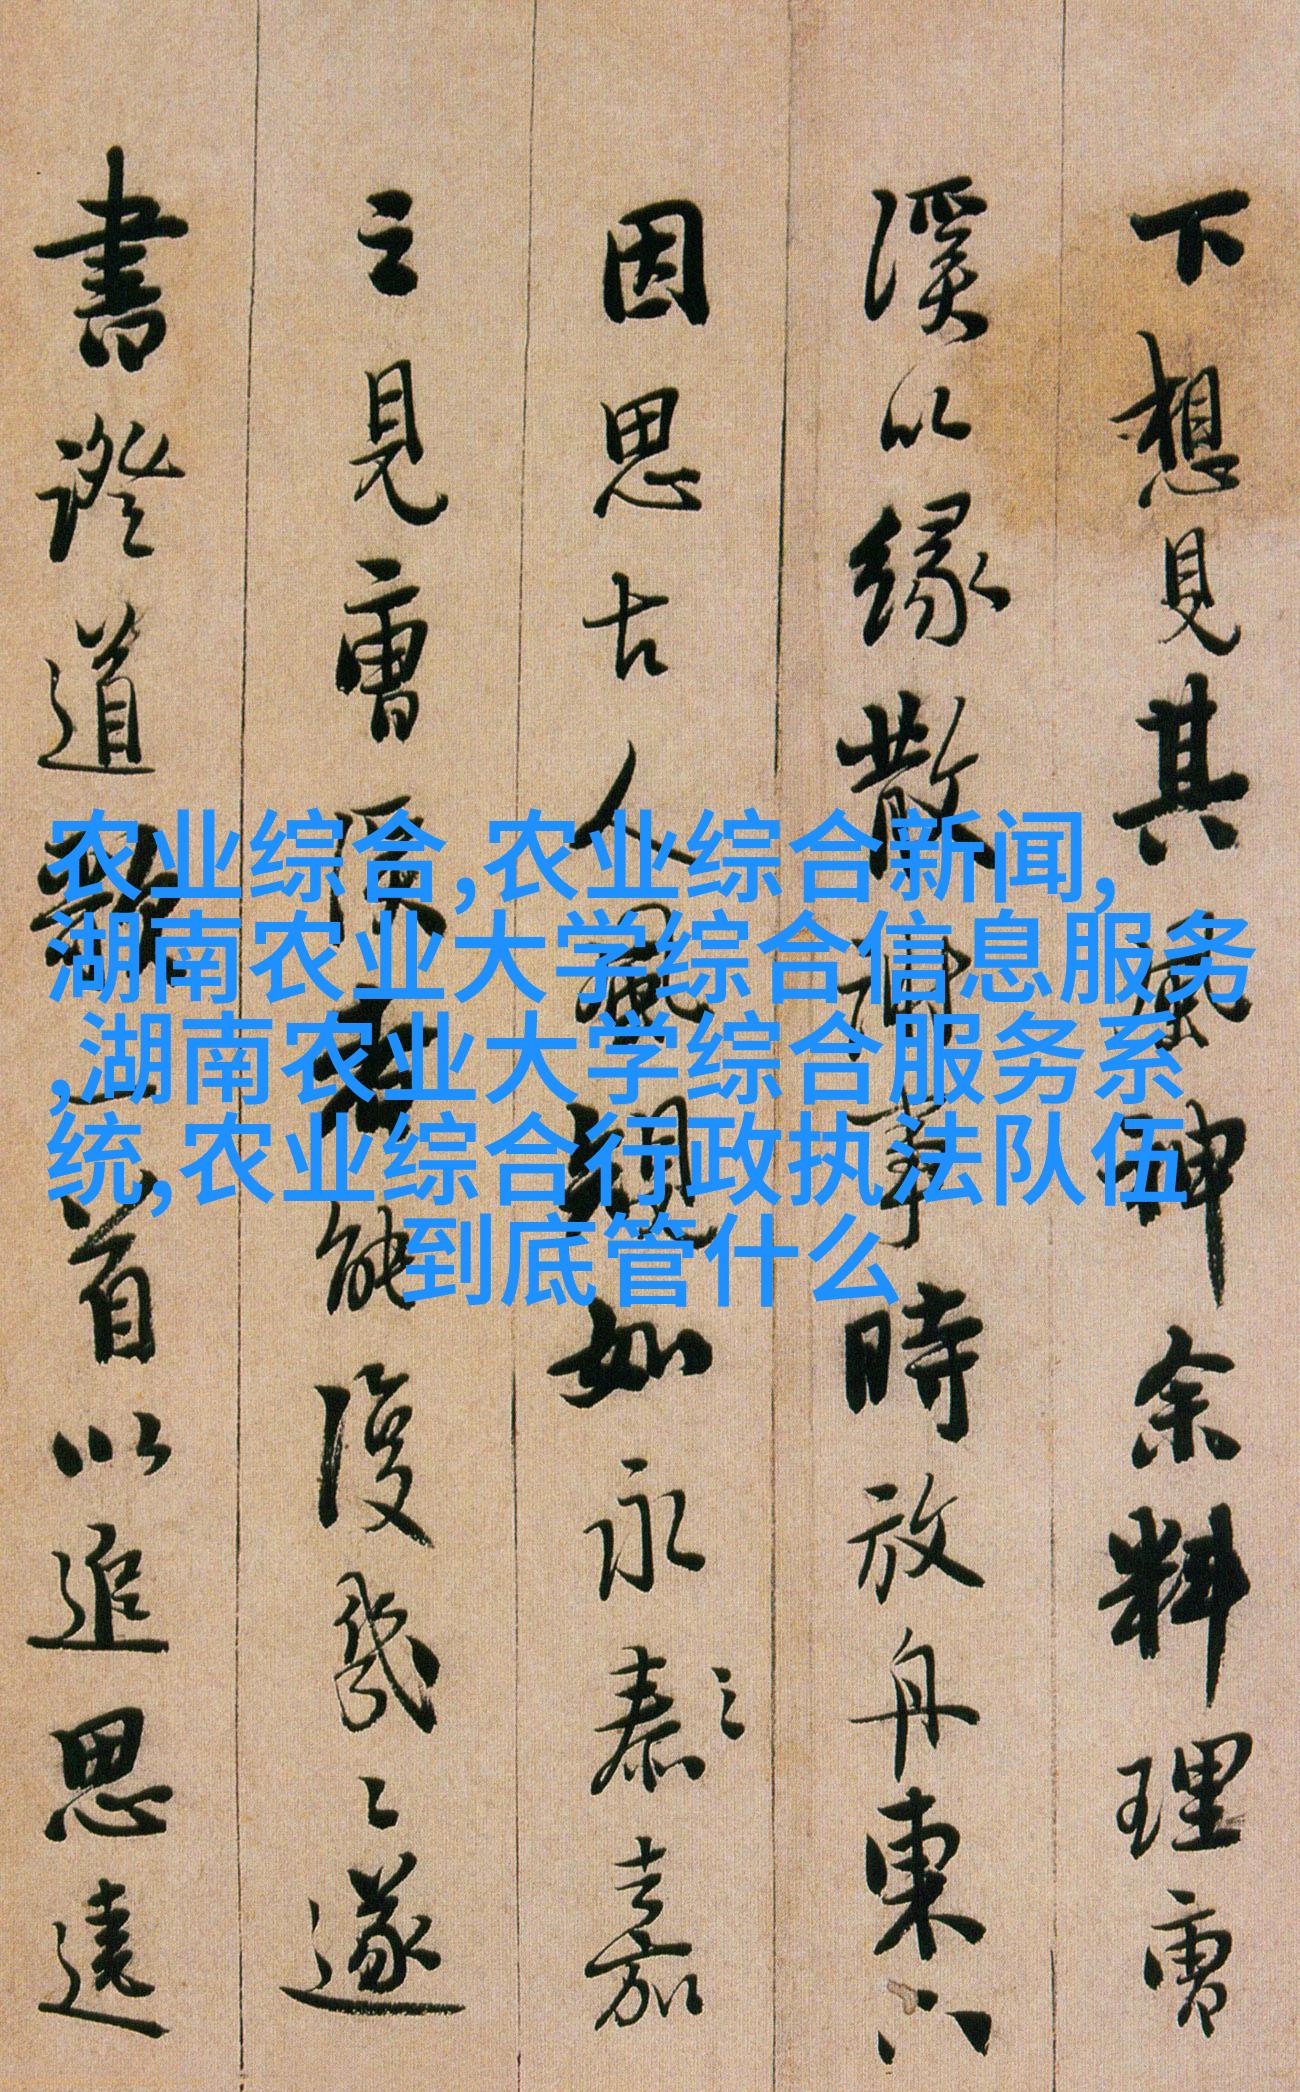 下想見其風神余料理雪
溪以緣散事時放舟東
因思古人風規如永泰之嘉
之見雪溪能復幾〻遂
書證道歌一首以追思遠
农业综合,农业综合新闻,
湖南农业大学综合信息服务
,湖南农业大学综合服务系
统,农业综合行政执法队伍
到底管什么